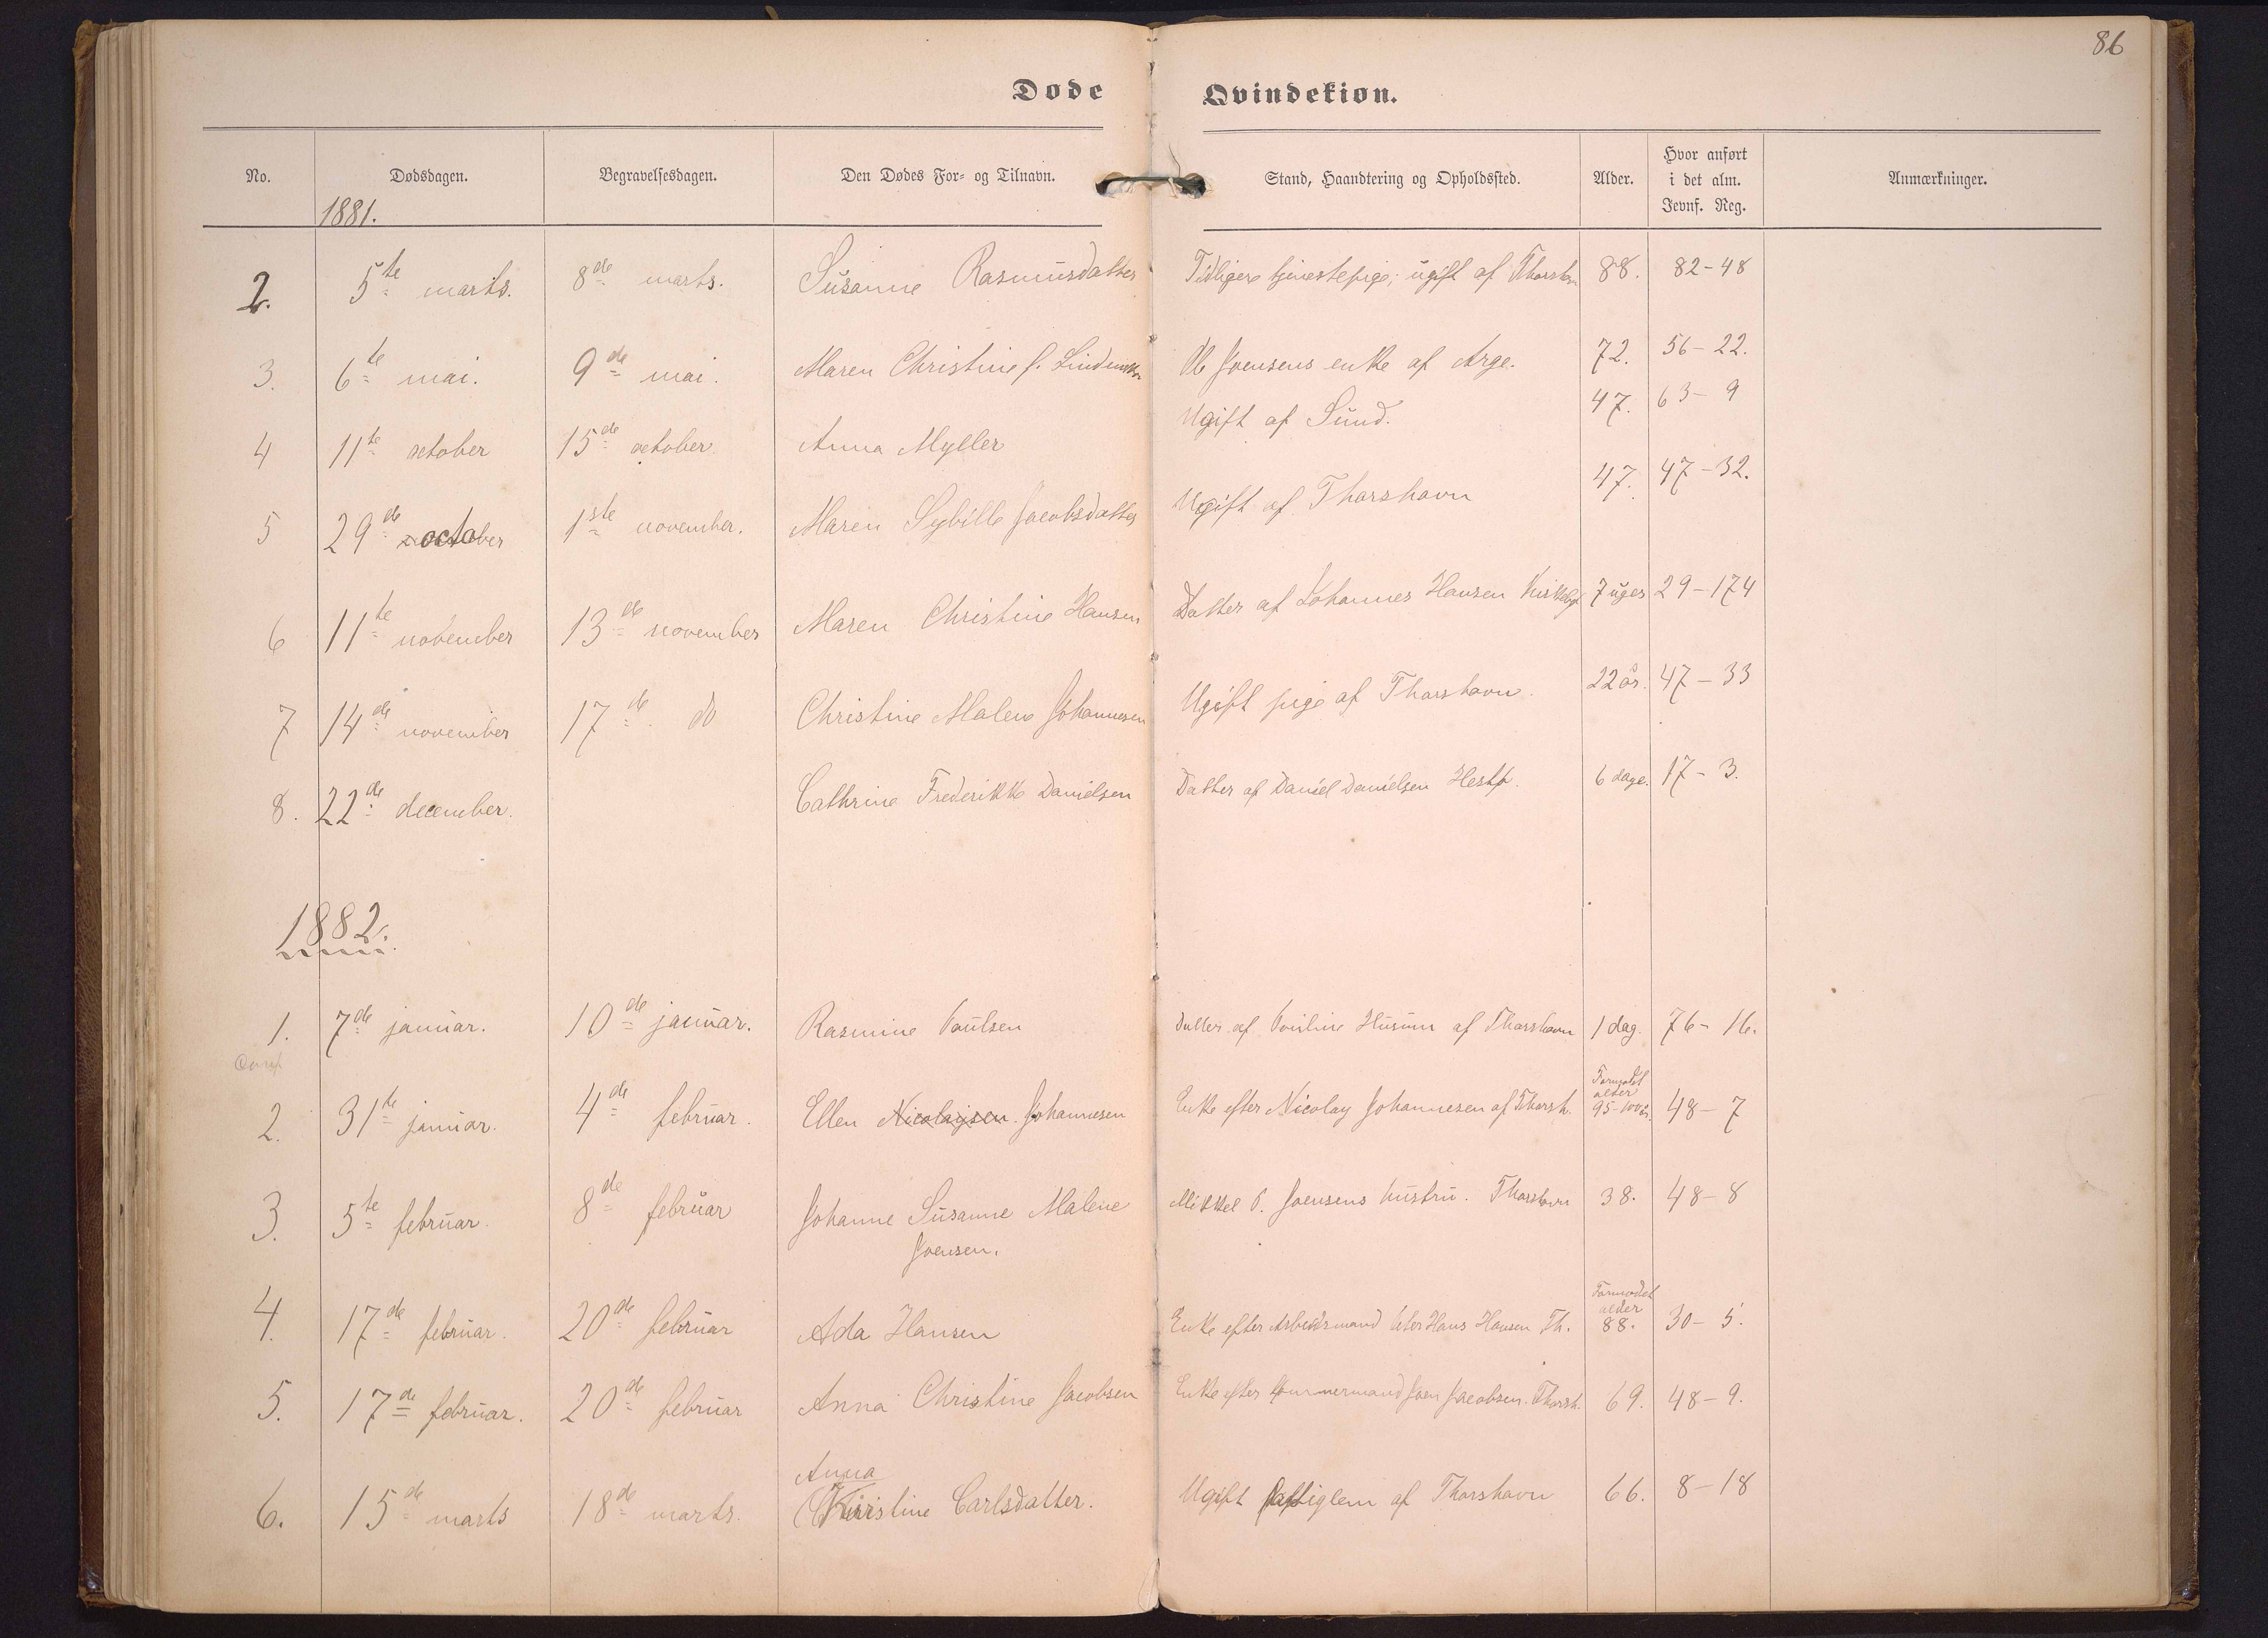 86
Døde Qvindekiøn.
No. Dødsdagen. Begravelsesdagen. Den Dødes For- og Tilnavn. Stand, Haandtering og Opholdssted. Alder. Hvor anført i det alm. Jevnf. Reg. Anmærkninger.
1881.
2. 5te marts. 8de marts. Susanne Rasmusdatter Tidligere tjenestepige; ugift af Thorshavn 88. 82-48
3. 6te mai. 9de mai. Maren Christine J. Joensens enke af Arge. 72. 56-22.
4 11te october 15de october. Anna Myller Ugift af Sund. 47. 63-9
5 29de october 1ste november. Maren Sybille Jacobsdatter Ugift af Thorshavn 47. 47-32.
6 11te november 13de november Maren Christine Hansen Datter af Johannes Hansen 7 uger 29-174
7 14de november 17de do Christine Malene Johannesen Ugift pige af Thorshavn. 22 år. 47-33
8. 22de december. Cathrine Frederikke Danielsen Datter af Daniel Danielsen Hestø. 6 dage. 17-3.
1882.
1. 7de januar. 10de januar. Rasmine Poulsen Datter af Pouline Husum af Thorshavn 1 dag. 76-16.
2. 31te januar. 4de februar. Ellen Nicolajsen. Johannesen Enke efter Nicolay Johannesen af Thorsh. Formodet alder 95-100 år. 48-7
3. 5te februar. 8de februar Johanne Susanne Malene Mikkel P. Joensens hustru. Thorshavn 38. 48-8
Joensen.
4. 17de februar. 20de februar Ada Hansen Enke efter Arbeidsmand Peter Hans Hansen Th. Formodet alder 88. 30-5.
5. 17de februar. 20de februar Anna Christine Jacobsen Enke efter tømmermand Joen Jacobsen. Thorsh. 69. 48-9.
Anna
6. 15de marts 18de marts. Christine Carlsdatter. Ugift fattiglem af Thorshavn 66. 8-18